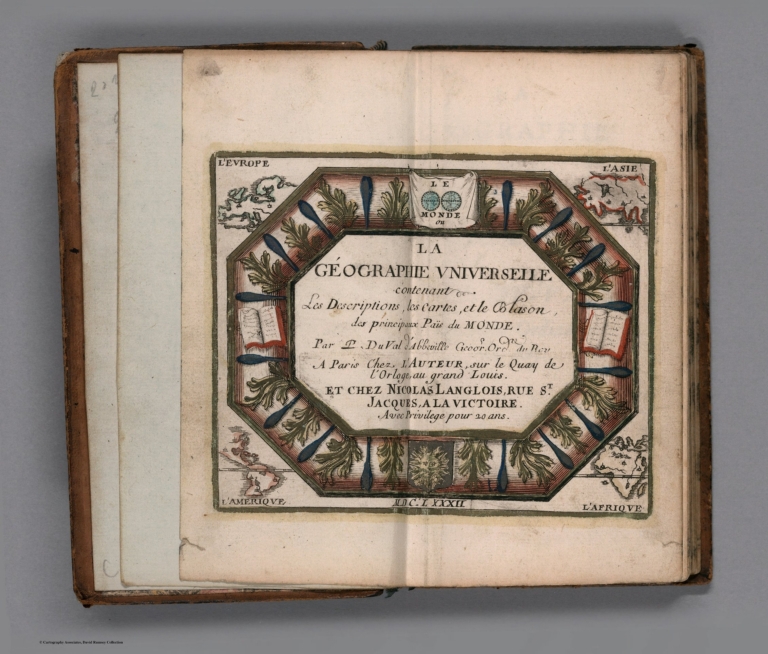 L'EVROPE
L'ASIE
LE
MONDE
ou
LA
GÉOGRAPHIE VNIVERSELLE
contenant
Les Descriptions, les cartes, et le Blason,
des principaux Païs du MONDE.
Par P. Du Val d'Abbeville Geogr. Ordre. du Roy
A Paris Chez L'AUTEUR, sur le Quay de
l'Orloge, au grand Louis.
ET CHEZ NICOLAS LANGLOIS, RUE ST.
JACQUES, A LA VICTOIRE.
Avec Privilege pour 20 ans.
L'AMERIQVE
MDC.LXXXII
L'AFRIQVE
© Cartography Associates, David Rumsey Collection